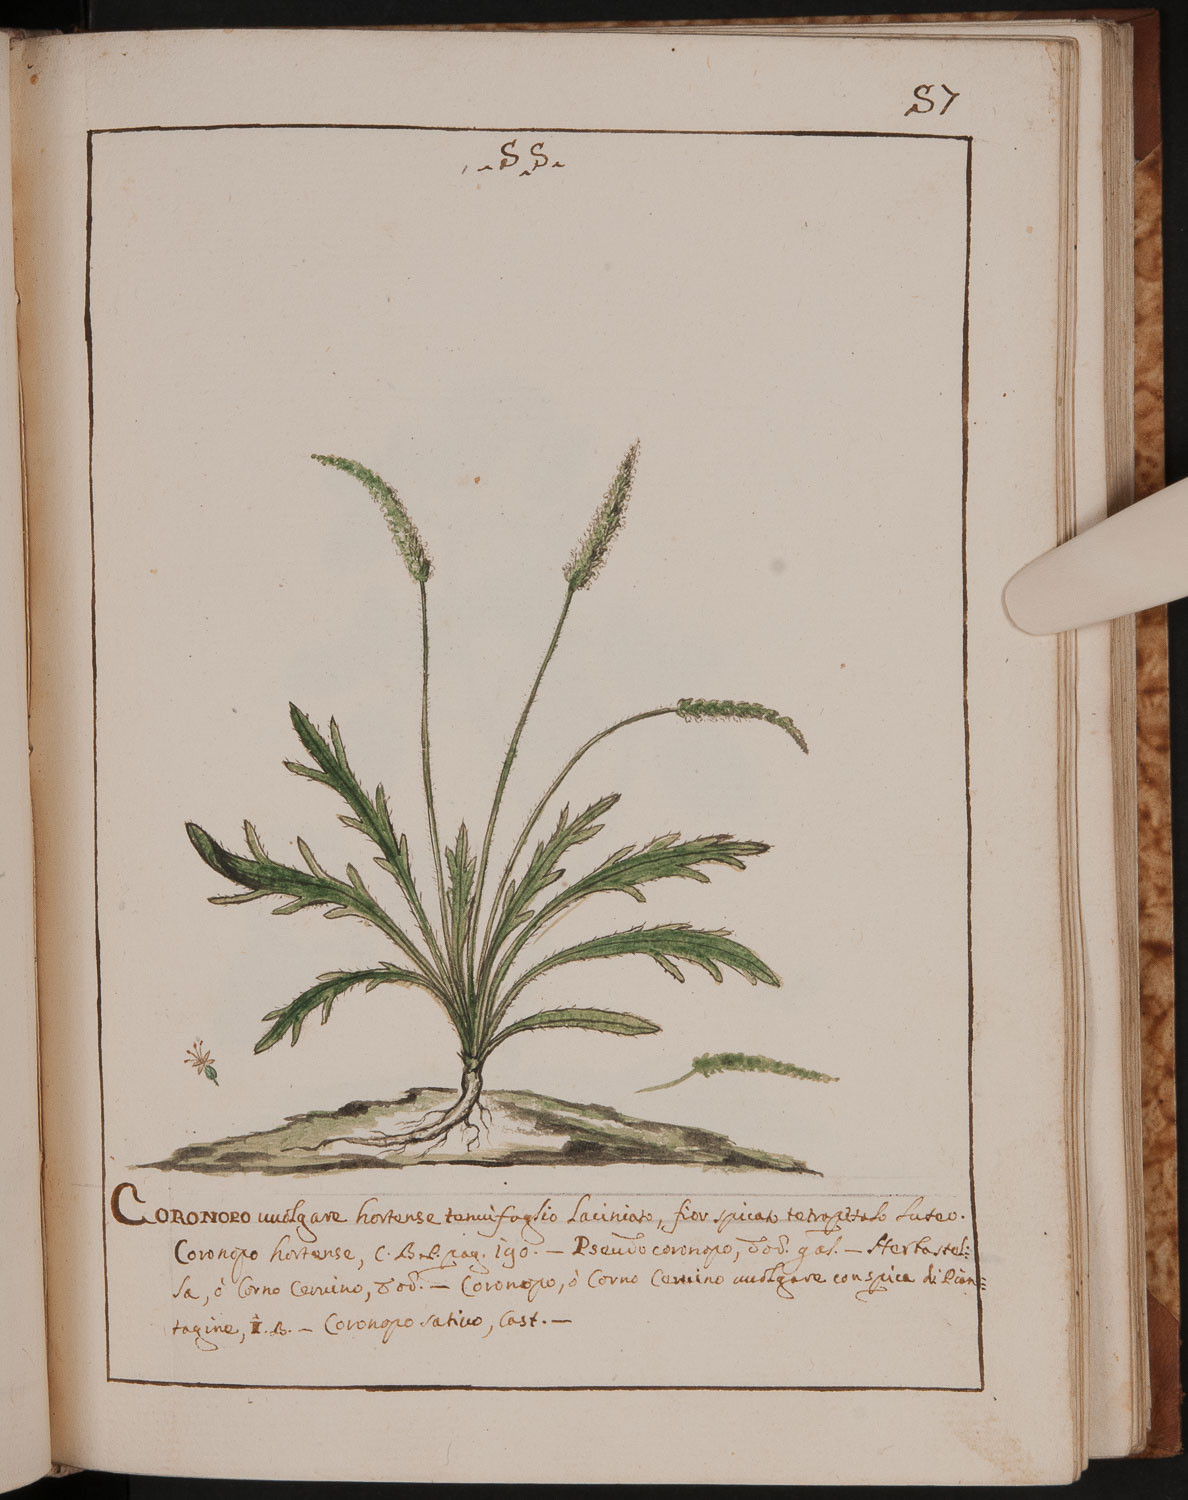 57
55.
CORONOPO uulgare hortense tenuifoglio laciniato, fior spicato tetrapetalo luteo.
Coronopo hortense, C. B. P. pag. 190. — Pseudocoronopo, Dod. gal. — Herba stel=
la, ò Corno Ceruino, Dod. — Coronopo, ò Corno Ceruino uulgare con spica di Pian=
tagine, I. B. — Coronopo satiuo, Cast. —